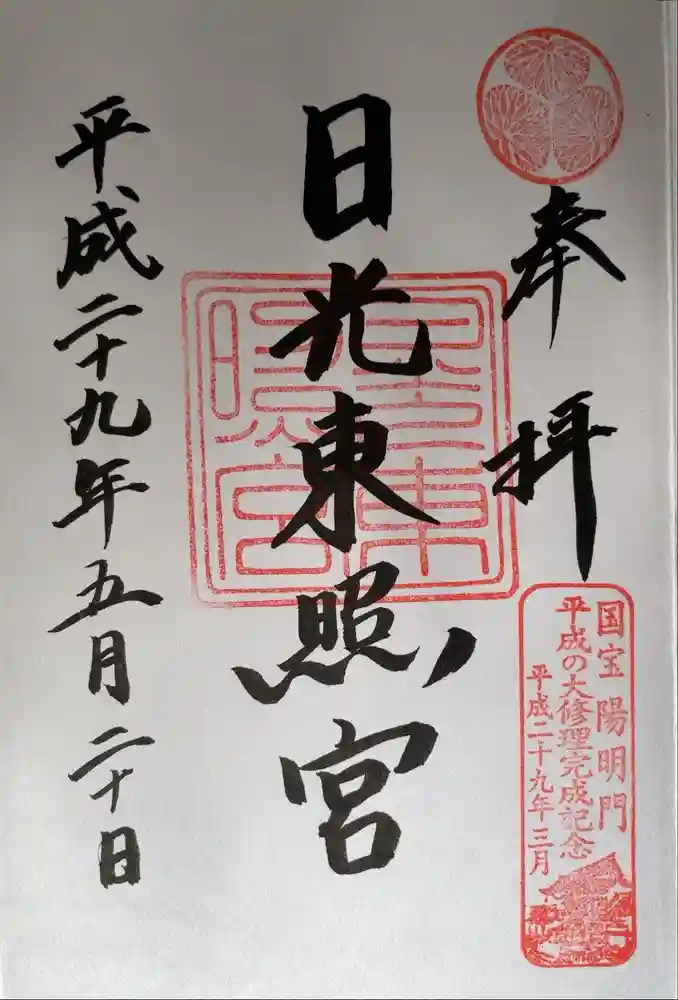 奉拝
国宝 陽明門
平成の大修理完成記念
平成二十九年三月
日光東照宮
東照宮
平成二十九年五月二十日